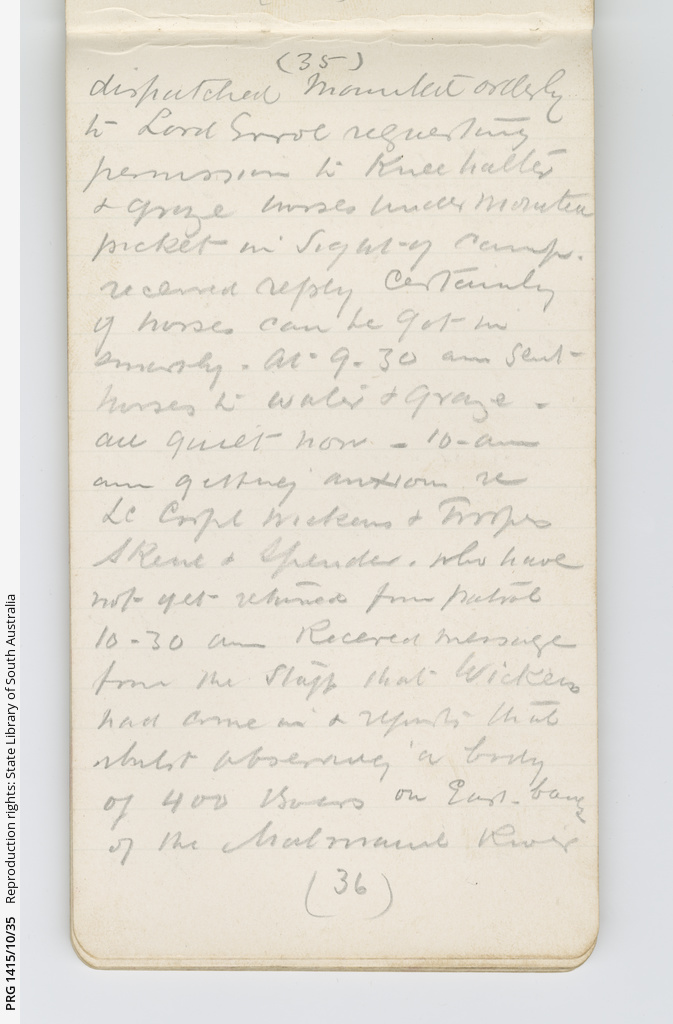 (35)
dispatched Mounted orderly
to Lord Errol requesting
permission to Knee halter
& graze horses under mounted
picket in Sight of Camp.
received reply Certainly
if horses can be got in
smartly. At 9.30 am Sent
horses to water & Graze.
all quiet now - 10-am
am getting anxious re
Lc Corpl Wickens & Troopers
Skene & Spender. who have
not yet returned from patrol
10-30 am Received message
from the Staff that Wickens
had come in & reports that
whilst observing a body
of 400 Boers on East bank
of the River
(36)
PRG 1415/10/35 Reproduction rights: State Library of South Australia